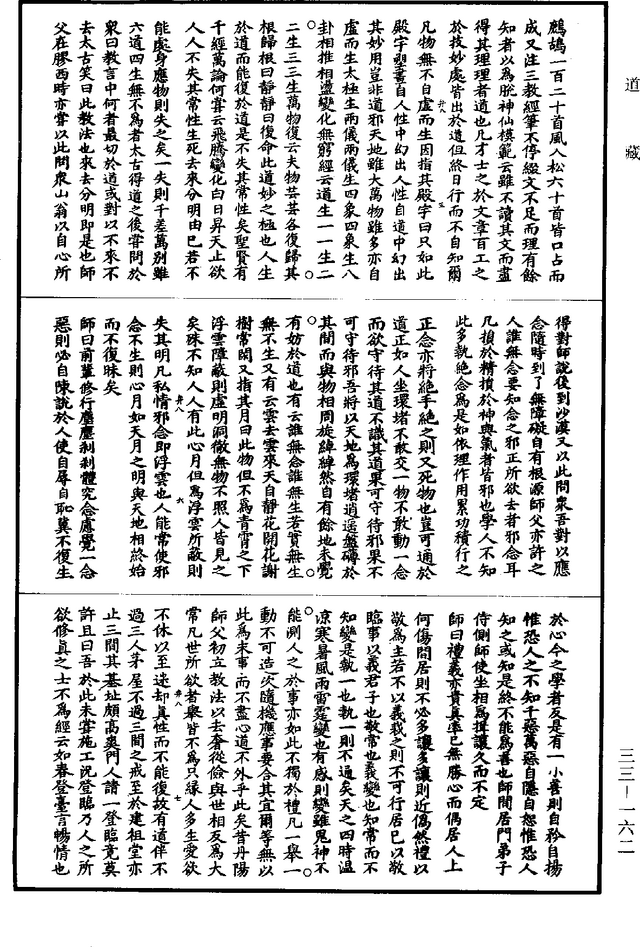 道藏
鷓鴣一百二十首風人松六十首皆口占而
成又注三教經筆不停綴文不足而理有餘
知者以為脫神仙模範云雖不讀其文而盡
得其理理者道也凡才士之於文章百工之
於技妙處皆出於道但終日行而不自知爾
凡物無不自虛而生因指其殿宇曰只如此
殿宇塑畫自人性中幻出人性自道中幻出
其妙用豈非道邪天地雖大萬物雖多亦自
虛而生太極生兩儀兩儀生四象四象生八
卦相推相盪變化無窮經云道生一一生二
二生三三生萬物復云夫物芸芸各復歸其
根歸根曰靜靜曰復命此道妙之極也人生
於道而能復於道是不失其常性矣聖賢有
千經萬論何嘗云飛騰變化白日昇天止欲
人人不失其常性生死去來分明由已若不
能處身應物則失之矣一失則千差萬別雖
六道四生無不為者太古得道之後嘗問於
衆曰教言中何者最切於道或對以不來不
去太古笑曰此教法也來去分明即是也師
父在膠西時亦嘗以此問衆山翁以自心所
得對師說後到沙漠又以此問衆吾對以應
念隨時到了無障礙自有根源師父亦許之
人誰無念要知念之邪正所欲去者邪念耳
凡損於精損於神與氣者皆邪也學人不知
此多執絶念為是如依理作用累功積行之
正念亦將絶手絶之則又死物也豈可通於
道正如人坐環堵不敢交一物不敢動一念
而欲守待其道不識其道果可守待邪果不
可守待邪吾將以天地為環堵逍遥盤礴於
其間而與物相周旋綽綽然自有餘地未覺
有妨於道也有云誰無念誰無生若實無生
無不生又有云雲去雲來天自靜花開花謝
樹常閑又指其月曰此物但不為青霄之下
浮雲障蔽則虛明洞徹無物不照人皆見之
矣殊不知人人有此心月但為浮雲所蔽則
失其明凡私情邪念即浮雲也人能常使邪
念不生則心月如天月之明與天地相終始
而不復昧矣
師曰前輩修行塵塵刹刹體究念慮覺一念
惡則必自陳說於人使自辱自恥冀不復生
於心今之學者反是有一小善則自矜自揚
惟恐人之不知千惡萬惡自隱自恕惟恐人
知之或知是終不能為善也師閒居門弟子
侍側師使坐相為揖讓久而不定
師曰禮義亦貴真率已無勝心而偶居人上
何傷閒居則不必多讓多讓則近偽然禮以
敬為主若不以義裁之則不可行居已以敬
臨事以義君子也敬常也義變也知常而不
知變是執一也執一則不通矣天之四時温
凉寒暑風雨雷霆變也有感則變雖鬼神不
能測人之於事亦如此不獨於禮凡一舉一
動不可造次隨機應事要合其宜爾等無以
此為末事而不盡心道不外乎此矣昔丹陽
師父初立教法以去奢從儉與世相反為大
常凡世所欲者舉皆不為只緣人多生愛欲
不休以至迷却真性而不能復故有道伴不
過三人茅屋不過三間之戒至於建祖堂亦
止三間其基址頗高爽門人請一登臨竟莫
許且曰吾於此未嘗施工況登臨乃人之所
欲修真之士不為經云如春登臺言暢情也
弁八 五
弁八 六
弁八 七
三三－一六二